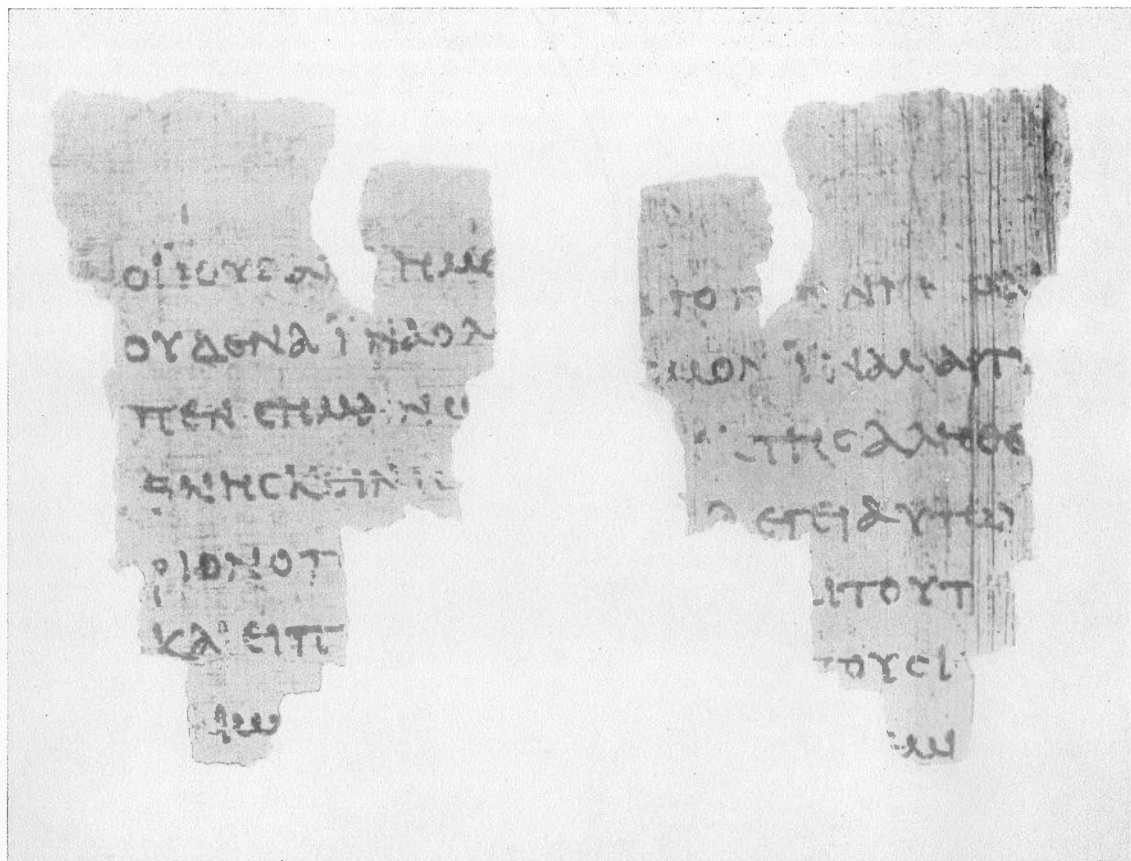 ΟΙΪΟΥΔΑΙ ΗΜΕ
ΟΥΔΕΝΑΪΝΑΟΛ
ΠΕΝϹΗΜΑΙΝΩ
ΘΝΗϹΚΕΙΝΙ
ΡΙΟΝΟΠ
ΚΑΙΕΙΠ
ΑΙΩ
ΤΟΓ ΕΝΝΗΜΑΙ
ϹΜΟΝΪΝΑΜΑΡΤΥ
ΕΚΤΗϹΑΛΗΘΕ
ΛΕΓΕΙΑΥΤΩ
ΑΙΤΟΥΤ
ΤΟΥϹΙ
ΕΜΙ